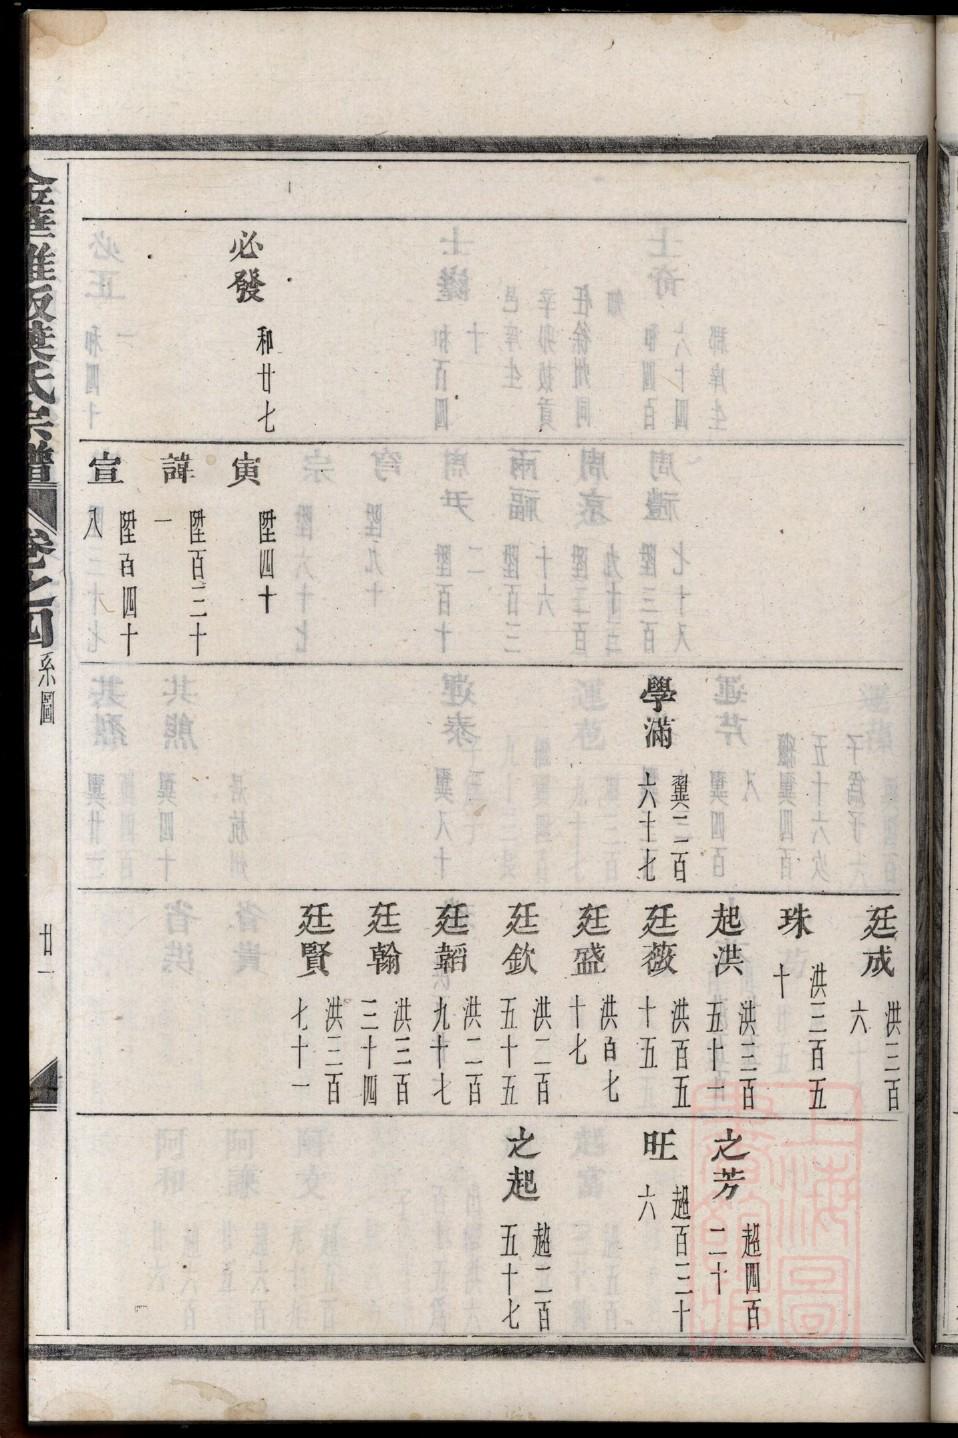 必發 和廿七
寅 陞四十
諱 陞百三十一
宣 陞百四十八
學滿 翼二百六十七
廷成 洪三百六
珠 洪三百五十
起洪 洪三百五十一
廷薇 洪百五十五
廷盛 洪百七十七
廷欽 洪二百五十五
廷韜 洪二百九十七
廷翰 洪三百三十四
廷賢 洪三百七十一
之芳 超四百二十
旺 超百三十六
之起 超二百五十七
葉氏宗譜 卷之四 系圖 廿一